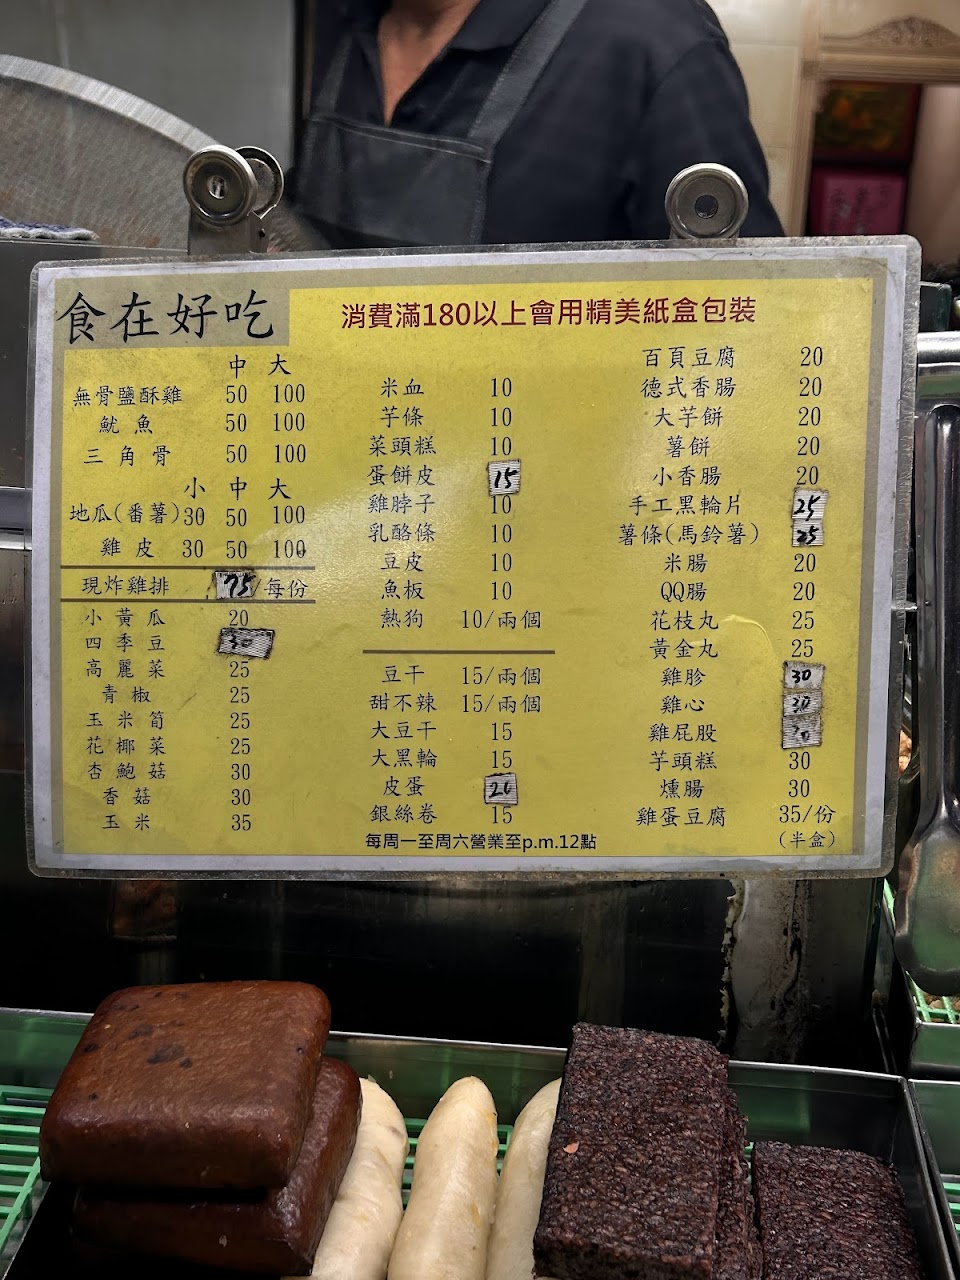 食在好吃
消費滿180以上會用精美紙盒包裝
中 大
無骨鹽酥雞 50 100
魷魚 50 100
三角骨 50 100
小 中 大
地瓜(番薯) 30 50 100
雞皮 30 50 100
現炸雞排 75/每份
小黃瓜 20
四季豆 30
高麗菜 25
青椒 25
玉米筍 25
花椰菜 25
杏鮑菇 30
香菇 30
玉米 35
米血 10
芋條 10
菜頭糕 10
蛋餅皮 15
雞脖子 10
乳酪條 10
豆皮 10
魚板 10
熱狗 10/兩個
豆干 15/兩個
甜不辣 15/兩個
大豆干 15
大黑輪 15
皮蛋 20
銀絲卷 15
百頁豆腐 20
德式香腸 20
大芋餅 20
薯餅 20
小香腸 20
手工黑輪片 25
薯條(馬鈴薯) 25
米腸 20
QQ腸 20
花枝丸 25
黃金丸 25
雞胗 30
雞心 30
雞屁股
芋頭糕 30
燻腸 30
雞蛋豆腐 35/份
(半盒)
每周一至周六營業至p.m.12點